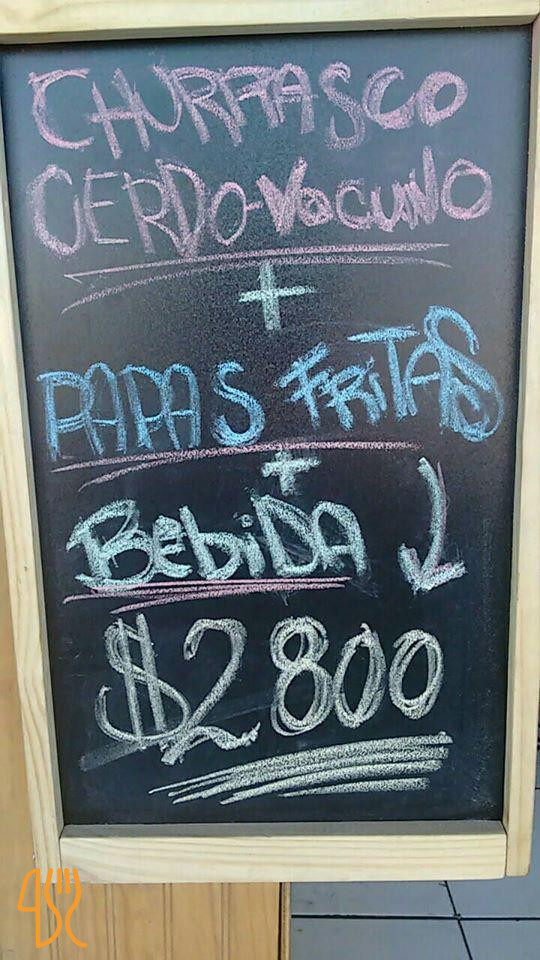 CHURRASCO
CERDO-VACUNO
+
PAPAS FRITAS
+
BEBIDA
$2800